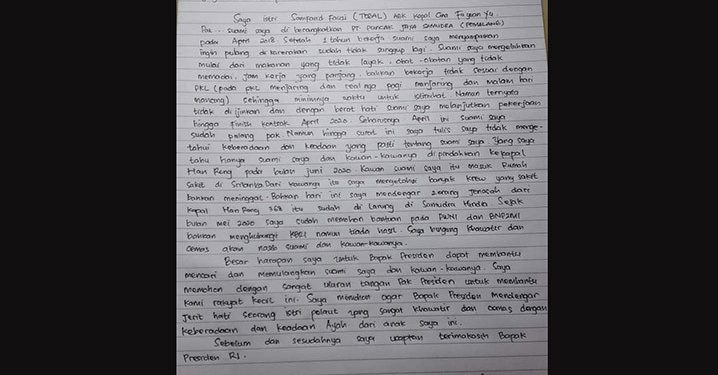 Saya istri Samsand Fausi (TEGAL) ABK Kapal China Fu yuan Yu
Pak.. suami saya di berangkatkan PT. PUNCAK JAYA SAMUDRA (PEMALANG)
pada April 2018. Setelah 1 tahun bekerja suami saya menyampaikan
ingin pulang di karenakan sudah tidak sanggup lagi. Suami saya mengeluhkan
mulai dari makanan yang tidak layak, obat-obatan yang tidak
memadai, jam kerja yang panjang, bahkan bekerja tidak sesuai dengan
PKL (pada PKL menjaring dan realnya pagi menjaring dan malam hari
mancing) sehingga minimnya waktu untuk istirahat. Namun ternyata
tidak di ijinkan dan dengan berat hati suami saya melanjutkan pekerjaan
hingga finish kontrak April 2020. Seharusnya April ini suami saya
sudah pulang pak. Namun hingga surat ini saya tulis saya tidak menge-
tahui keberadaan dan keadaan yang pasti tentang suami saya. Yang saya
tahu hanya suami saya dan kawan-kawanya di pindahkan ke kapal
Han Rong pada bulan juni 2020. Kawan suami saya itu masuk Rumah
sakit di Srilanka. Dari kawanya itu saya mengetahui banyak krew yang sakit
bahkan meninggal. Bahkan hari ini saya mendengar 2 orang jenazah dari
kapal Han Rong 368 itu sudah di larung di Samudra Hindia. Sejak
bulan mei 2020 saya sudah memohon bantuan pada PWNI dan BNP2MI
bahkan menghubungi KBRI namun tiada hasil. Saya bingung, khawatir dan
cemas akan nasib suami dan kawan-kawanya.
Besar harapan saya untuk Bapak Presiden dapat membantu
mencari dan memulangkan suami saya dan kawan-kawanya. Saya
memohon dengan sangat uluran tangan Pak Presiden untuk membantu
kami rakyat kecil ini. Saya memohon agar Bapak Presiden mendengar
jerit hati seorang istri pelaut yang sangat khawatir dan cemas dengan
keberadaan dan keadaan Ayah dari anak saya ini.
Sebelum dan sesudahnya saya ucapkan terimakasih Bapak
Presiden RI.